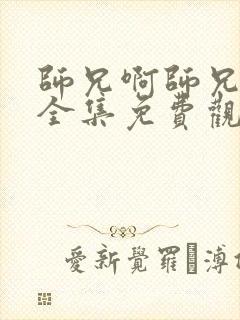 師兄啊師兄
全集免費觀
愛新覺羅 溥